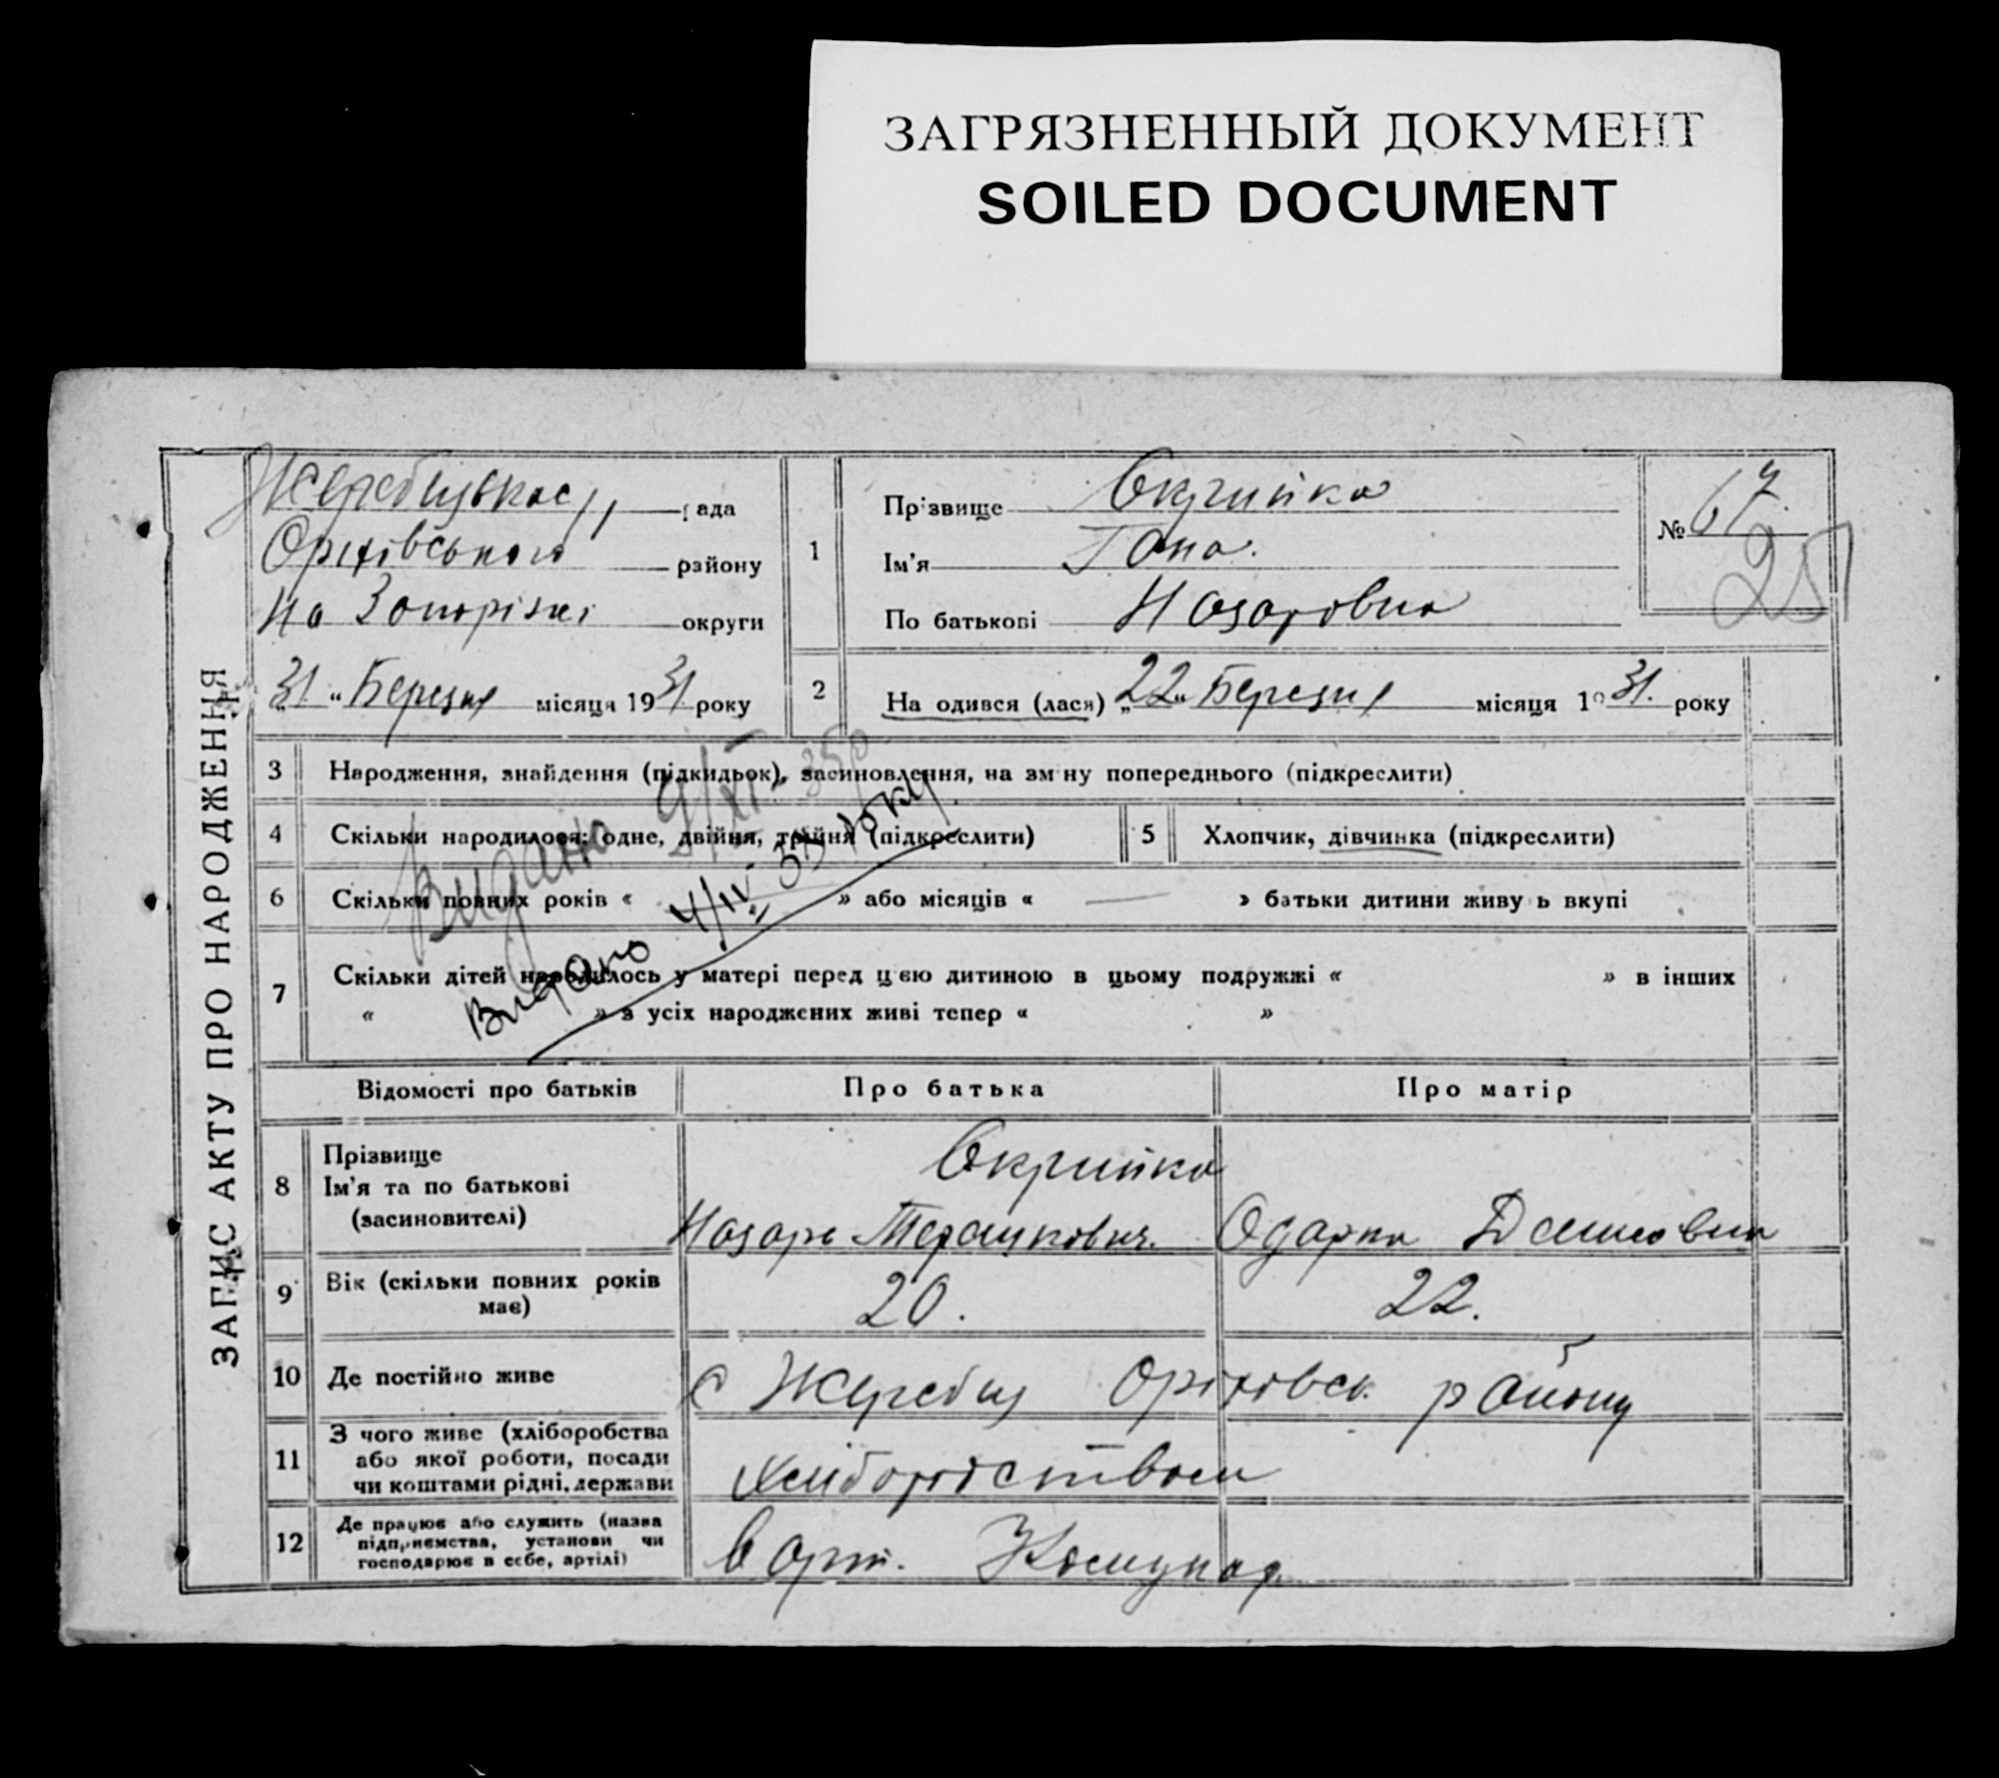 ЗАГРЯЗНЕННЫЙ ДОКУМЕНТ
SOILED DOCUMENT
ЗАПИС АКТУ ПРО НАРОДЖЕННЯ
Жеребецькас рада
Оріхівського району
На Запоріжжі округи
„31“ Березня місяця 1931 року
1
Прізвище Скрипка
Ім'я Гана.
По батькові Назаровна
№ 67.
251
2 На одився (лася) „22“ Березня місяця 1931. року
3 Народження, знайдення (підкидьок), засиновлення, на зміну попереднього (підкреслити)
4 Скільки народилося: одне, двійня, трійня (підкреслити) 5 Хлопчик, дівчинка (підкреслити)
6 Скільки повних років « » або місяців « — » батьки дитини живу ь вкупі
7 Скільки дітей народилось у матері перед цією дитиною в цьому подружжі « » в інших
« » з усіх народжених живі тепер « »
Видано 9/XI 35р
Видано 4/IV 35 року
Відомості про батьків Про батька Про матір
8 Прізвище
Ім'я та по батькові
(засиновителі)
Скрипка
Назарь Одарка
9 Вік (скільки повних років
має)
20. 22.
10 Де постійно живе с Жеребец Оріхівск. району
11 З чого живе (хліборобства
або якої роботи, посади
чи коштами рідні, держави
хліборобством
12 Де працює або служить (назва
підприємства, установи чи
господарює в себе, артілі)
в арт. Комунар